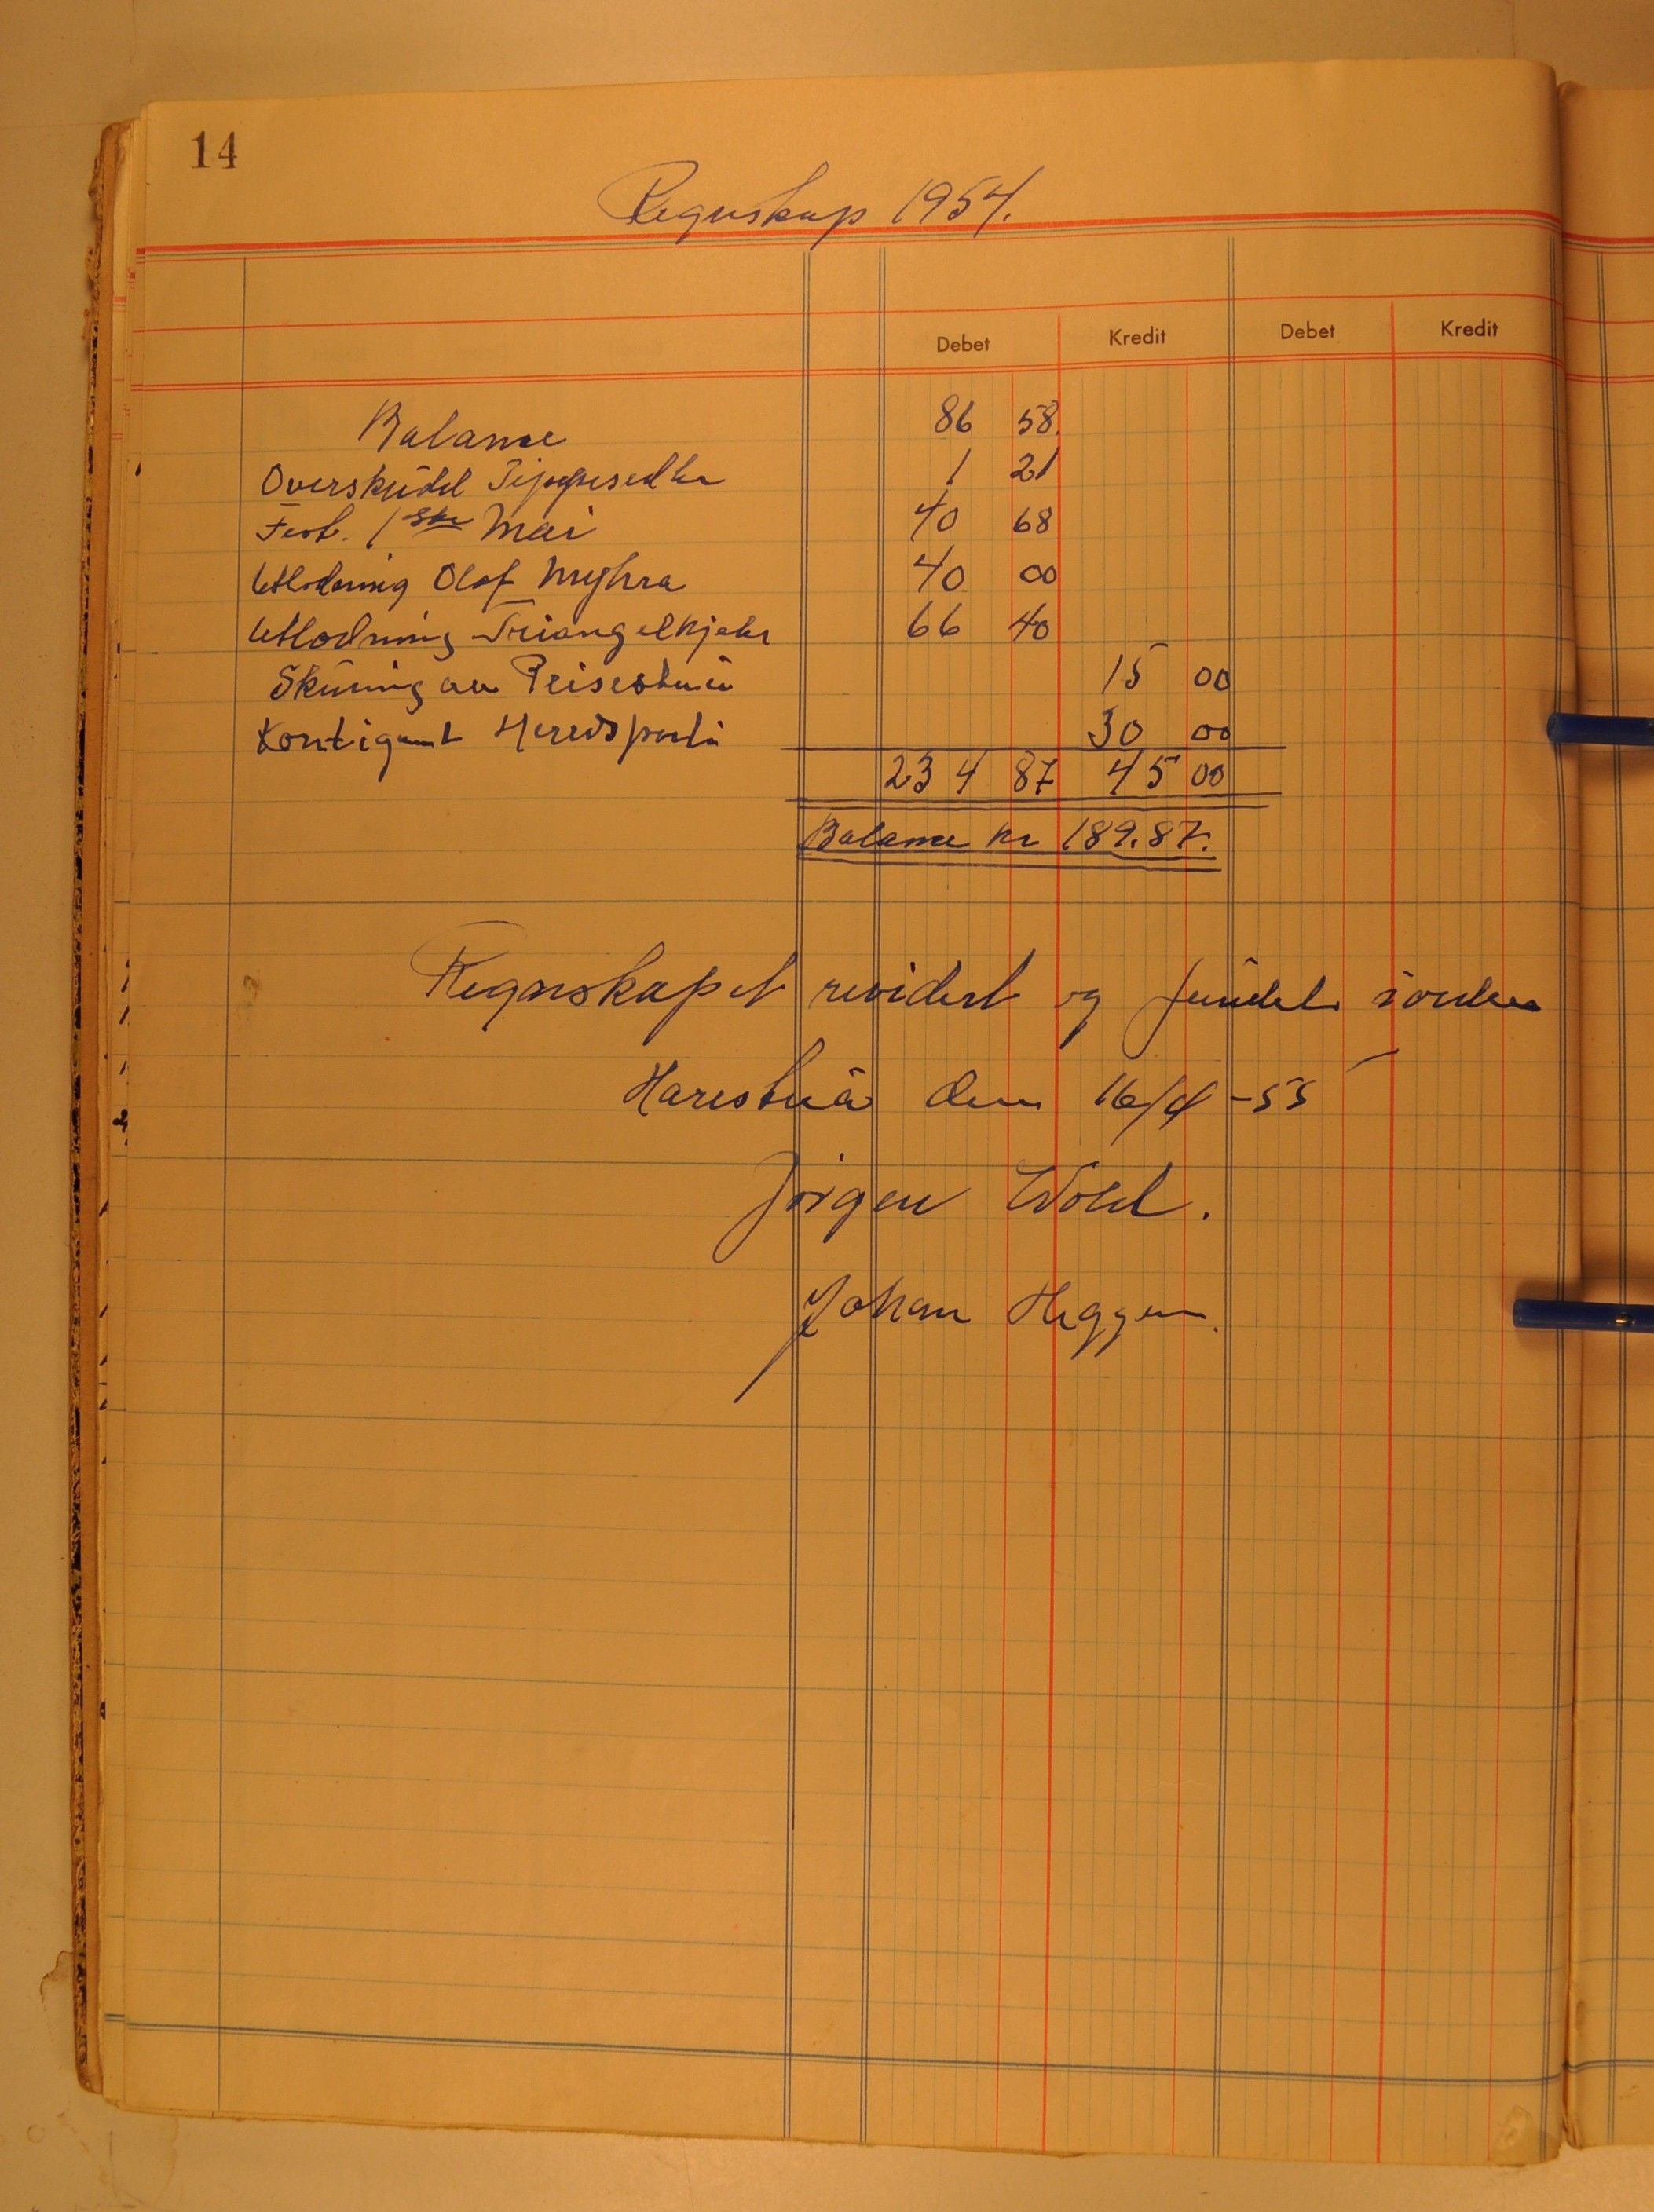 14
Regnskap 1954.
Debet Kredit Debet Kredit
Balance 86 58.
Overskudd Tippesedler 1 21
Fest. 1ste Mai 40 68
Utlodning Olof Myhra 40 00
Utlodning Triangelkjeks 66 40
Skuring av 15 00
Kontigent Heredsparti 30 00
234 87 45 00
Balance kr 189.87.
Regnskapet revidert og fundet i orden
Harestua den 16/4 -55
Jørgen Wold.
Johan Heggen.